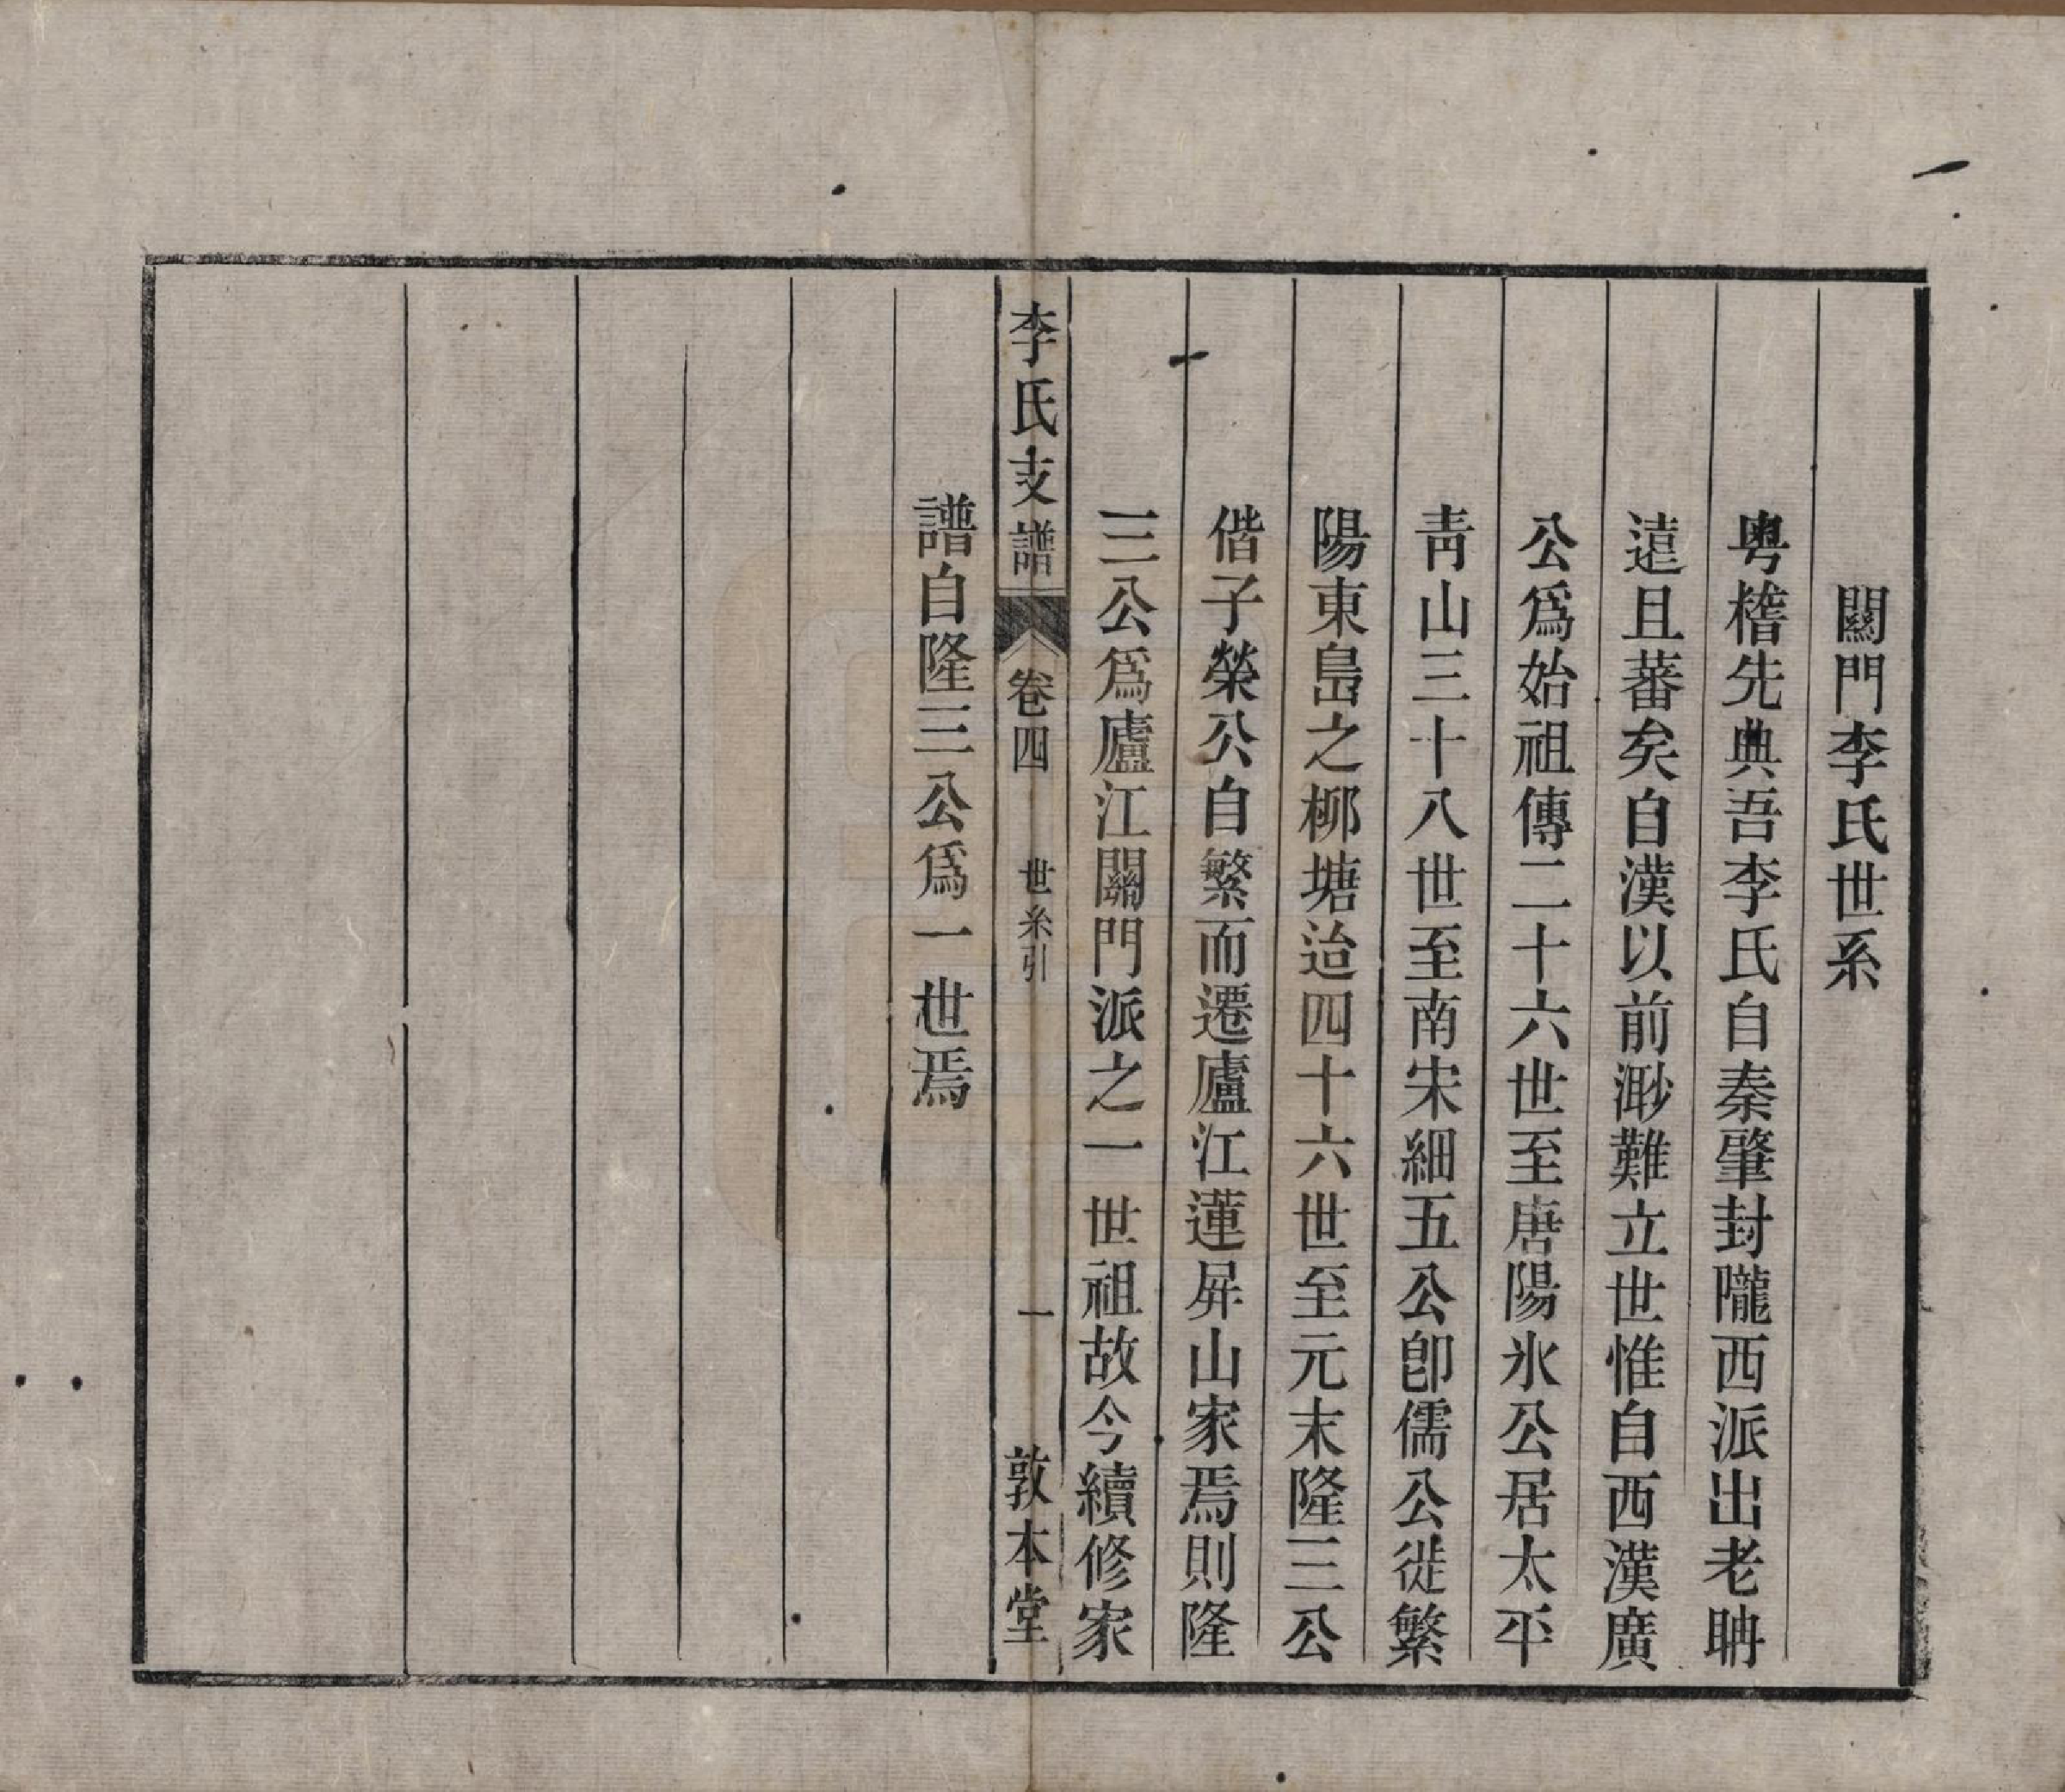 關門李氏世系
粵稽先典吾李氏自秦肇封隴西派出老聃
遠且蕃矣自漢以前渺難立世惟自西漢廣
公爲始祖傳二十六世至唐陽氷公居太平
靑山三十八世至南宋細五公卽儒公徙繁
陽東島之柳塘迨四十六世至元末隆三公
偕子榮公自繁而遷廬江蓮屛山家焉則隆
三公爲廬江關門派之一世祖故今續修家
李氏支譜
卷四
世系引
一
敦本堂
譜自隆三公爲一世焉